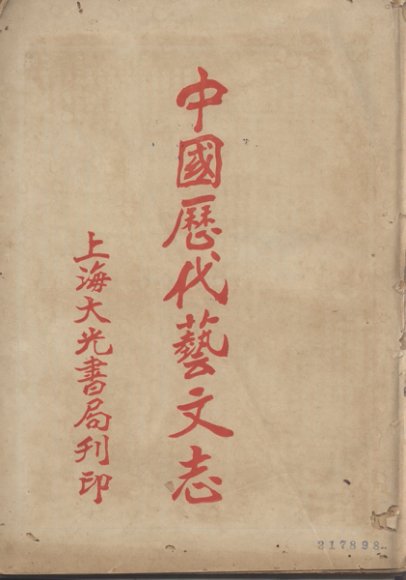 中國歷代藝文志
上海大光書局刊印
217898